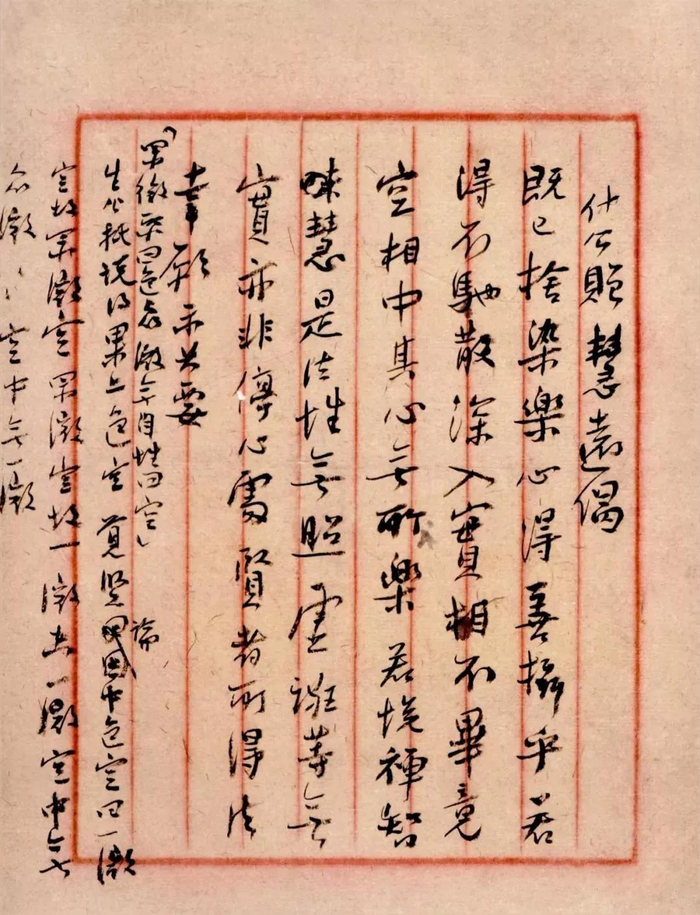 什公贈慧遠偈
既已捨染樂心得善攝乎若
得不馳散深入實相不畢竟
空相中其心無所樂若悅禪智
味慧是法性無照虛誑等無
實亦非停心處賢者所得法
幸願示其要
「果微眾四色名微無自性曰空」
生公執境得果上色空覓賢論因中色空曰一微
空故眾微空眾微空故一微去一微空中无
名微 空中無一微